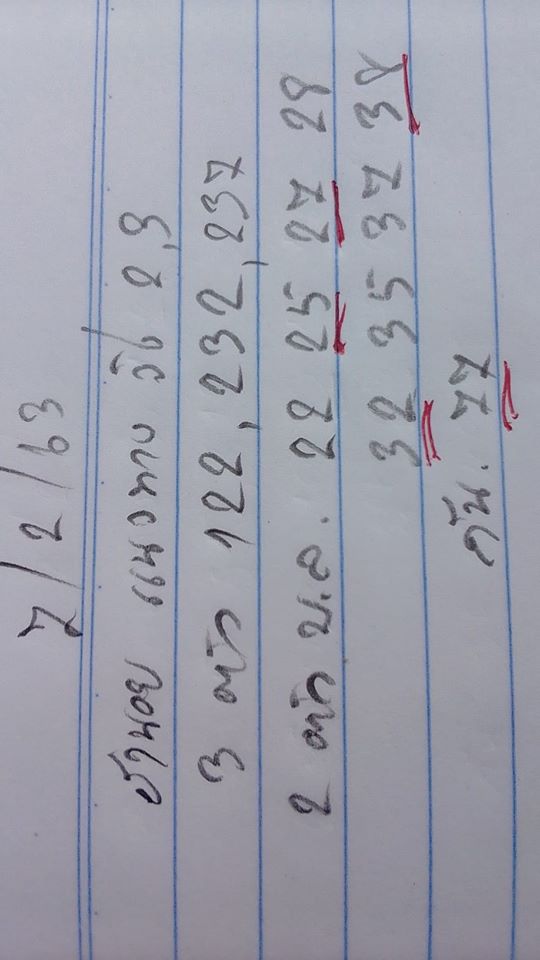 7/2/63
ฮานอย แนวทาง วิ่ง 2,3
3 ตัว 122, 232, 237
2 ตัว บ.ล. 22 25 27 28
32 35 37 38
กัน. 77